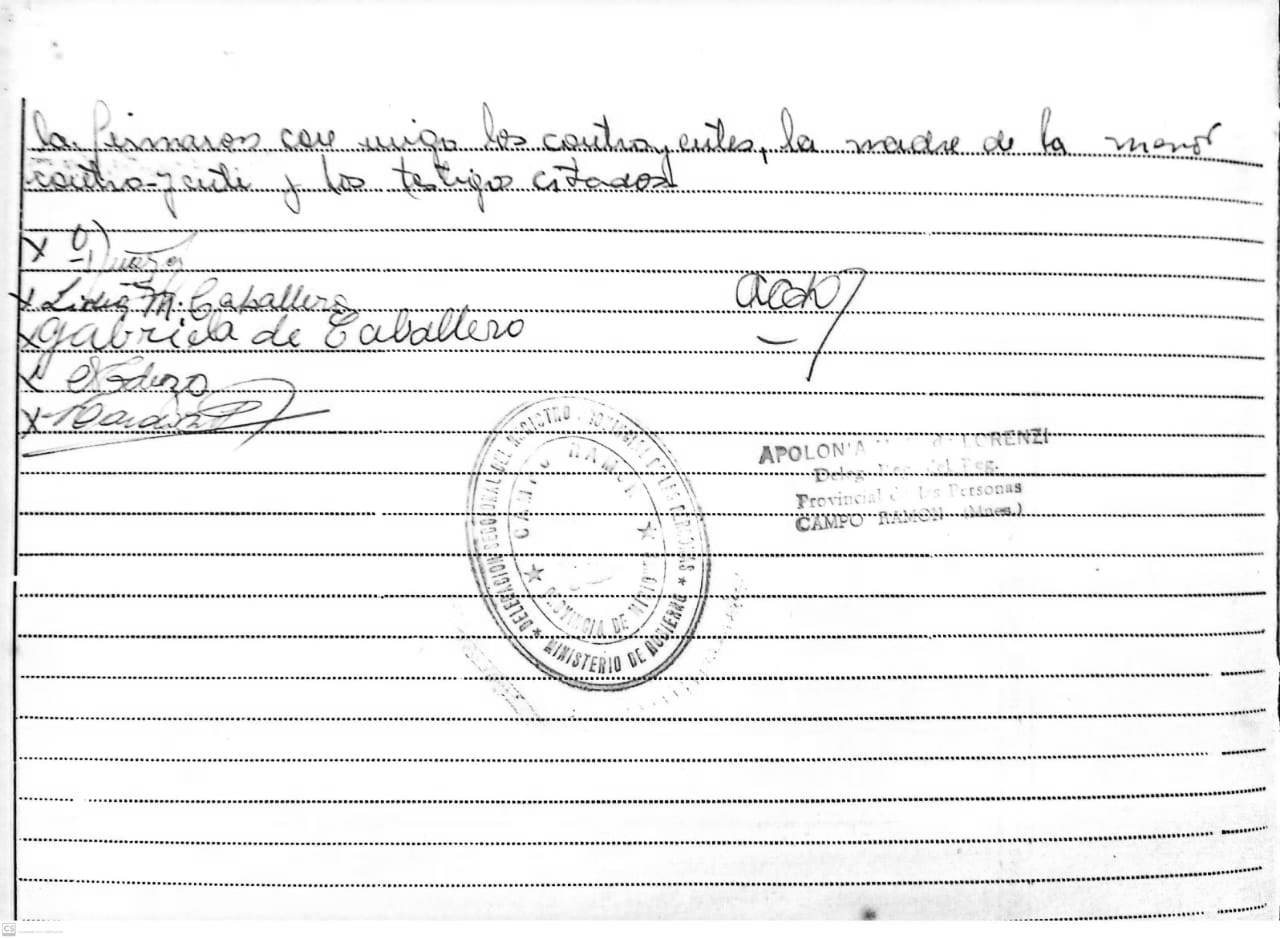 la firmaron con migo los contrayentes, la madre de la menor
contra-yente y los testigos citados
x
x Lidia M. Caballero
x Gabriela de Caballero
x
x
DELEGACION SECCIONAL DEL REGISTRO PROVINCIAL DE LAS PERSONAS
★ MINISTERIO DE GOBIERNO ★
CAMPO RAMON
★ PROVINCIA DE MISIONES ★
APOLONIA LORENZI
Deleg. del Reg.
Provincial de las Personas
CAMPO RAMON (Mnes.)
CS